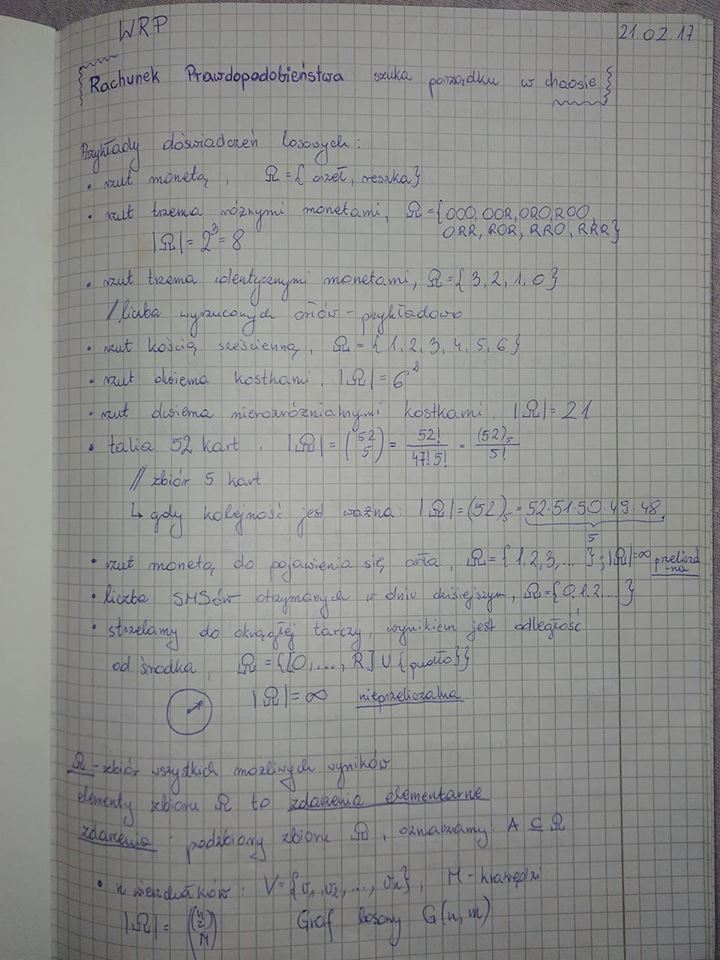 WRP 21.02.17
Rachunek Prawdopodobieństwa szuka porządku w chaosie
Przykłady doświadczeń losowych:
• rzut monetą, Ω = {orzeł, reszka}
• rzut trzema różnymi monetami, Ω = {OOO, OOR, ORO, ROO,
ORR, ROR, RRO, RRR}
|Ω| = 2³ = 8
• rzut trzema identycznymi monetami, Ω = {3, 2, 1, 0}
// liczba wyrzuconych orłów - przykładowo
• rzut kością sześcienną, Ω = {1, 2, 3, 4, 5, 6}
• rzut dwiema kostkami. |Ω| = 6²
• rzut dwiema nierozróżnialnymi kostkami. |Ω| = 21
• talia 52 kart. |Ω| = (52 5) = 52!/47!5! = (52)₅/5!
// zbiór 5 kart
↳ gdy kolejność jest ważna: |Ω| = (52)₅ = 52·51·50·49·48,
5
• rzut monetą do pojawienia się orła, Ω = {1, 2, 3, ...}; |Ω| = ∞ przelicz-
-na
• liczba SMSów otrzymanych w dniu dzisiejszym, Ω = {0, 1, 2 ...}
• strzelamy do okrągłej tarczy, wynikiem jest odległość
od środka, Ω = {[0, ..., R] ∪ {pudło}}
|Ω| = ∞ nieprzeliczalna
Ω - zbiór wszystkich możliwych wyników
elementy zbioru Ω to zdarzenia elementarne
zdarzenia - podzbiory zbioru Ω, oznaczamy: A ⊆ Ω
• n wierzchołków: V = {v₁, v₂, ..., vₙ}, M - krawędzi
|Ω| = ((n 2) M) Graf losowy G(n, m)